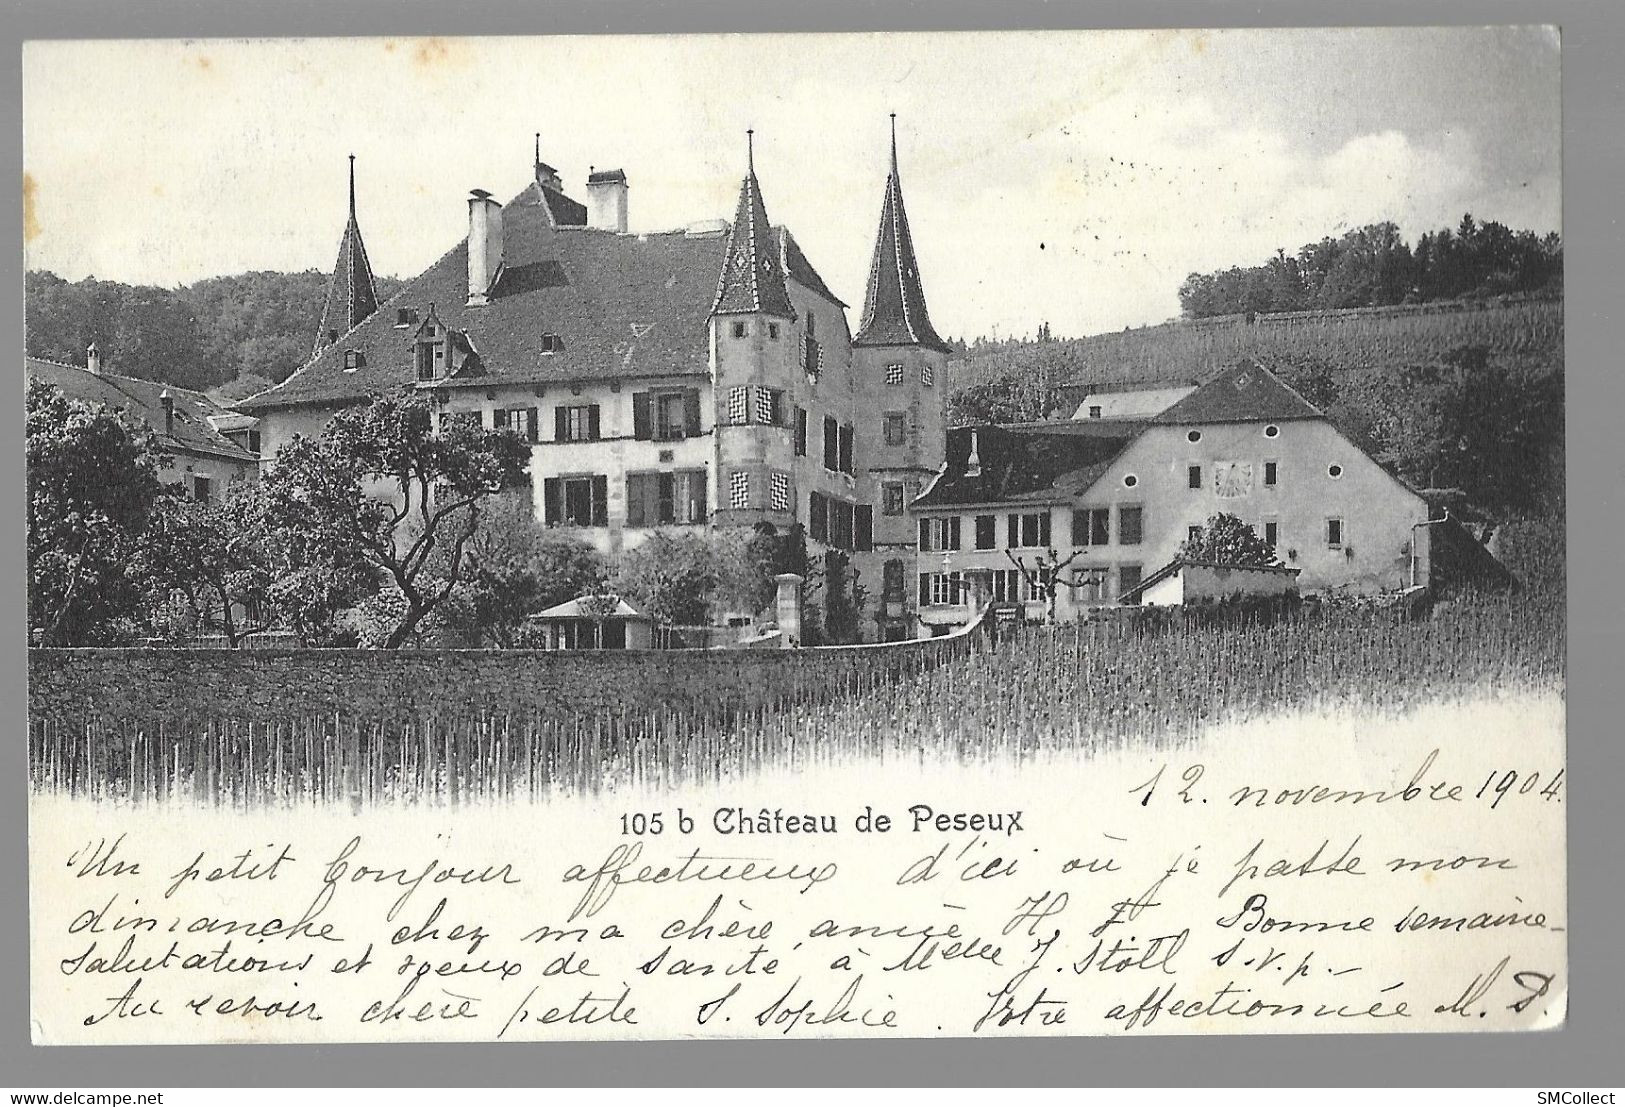 12. novembre 1904.
105 b Château de Peseux
Un petit bonjour affectueux d'ici où je passe mon
dimanche chez ma chère amie H. F. Bonne semaine
Salutations et voeux de santé à Melle J. Stoll s.v.p.
Au revoir chère petite S. Sophie. Votre affectionnée M. P.
www.delcampe.net
SMCollect